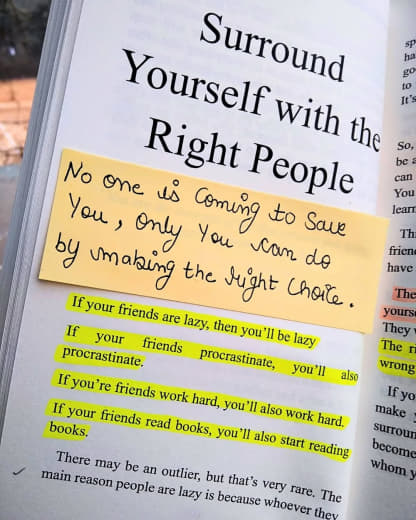 Surround
Yourself with the
Right People
No one is Coming to Save
You, only You can do
by making the right Choice.
If your friends are lazy, then you'll be lazy
If your friends procrastinate, you'll also
procrastinate.
If you're friends work hard, you'll also work hard.
If your friends read books, you'll also start reading
books.
There may be an outlier, but that's very rare. The
main reason people are lazy is because whoever they
to
It's
So,
be a
can
You
learn
have
The
They
The
wrong
If
make
become
whom